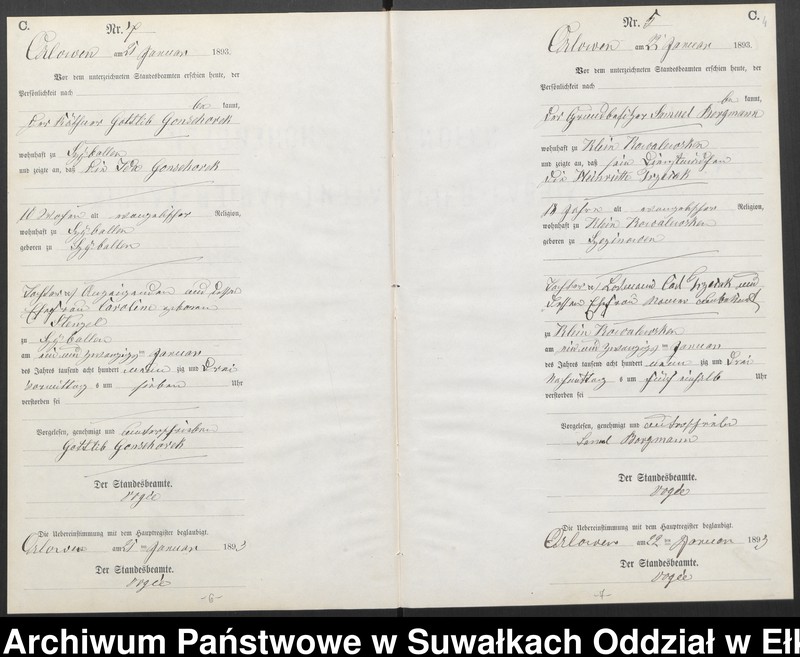 C.
Nr. 4
Orlowen am 21 Januar 1893.
Vor dem unterzeichneten Standesbeamten erschien heute, der
Persönlichkeit nach
be kannt,
der Käthner Gottlieb Gonschorek
wohnhaft zu Szyballen
und zeigte an, daß die Ida Gonschorek
10 Wochen alt evangelischer Religion,
wohnhaft zu Szyballen
geboren zu Szyballen
Tochter des Anzeigenden und dessen
Ehefrau Caroline geborenen
Stenzel
zu Szyballen
am ein und zwanzigsten Januar
des Jahres tausend acht hundert neun zig und drei
Vormittags um sieben Uhr
verstorben sei
Vorgelesen, genehmigt und unterschrieben
Gottlieb Gonschorek
Der Standesbeamte.
Die Uebereinstimmung mit dem Hauptregister beglaubigt.
Orlowen am 21 ten Januar 1893
Der Standesbeamte.
-6-
C.
4
Nr. 5
Orlowen am 22 Januar 1893.
Vor dem unterzeichneten Standesbeamten erschien heute, der
Persönlichkeit nach
be kannt,
der Grundbesitzer Samuel Borgmann
wohnhaft zu Klein Kowalewsken
und zeigte an, daß sein Dienstmädchen
die Heinriette
18 Jahre alt evangelischer Religion,
wohnhaft zu Klein Kowalewsken
geboren zu
Tochter des Losmann Carl und
dessen Ehefrau Namen unbekannt
zu Klein Kowalewsken
am ein und zwanzigsten Januar
des Jahres tausend acht hundert neun zig und drei
Nachmittags um fünf einhalb Uhr
verstorben sei
Vorgelesen, genehmigt und unterschrieben
Borgmann
Der Standesbeamte.
Die Uebereinstimmung mit dem Hauptregister beglaubigt.
Orlowen am 22 ten Januar 1893
Der Standesbeamte.
-7-
Archiwum Państwowe w Suwałkach Oddział w Ełk